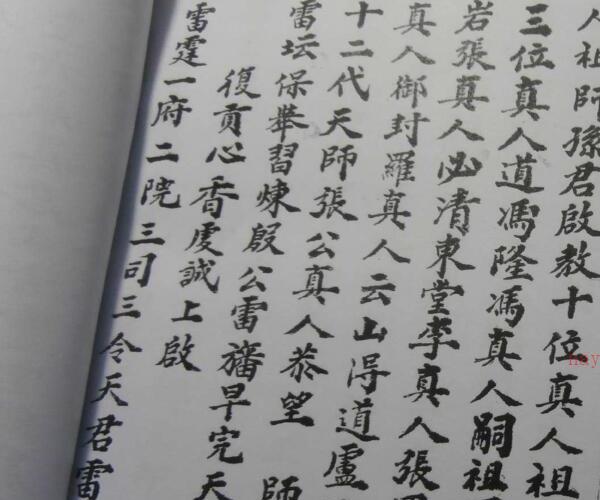 人祖師孫君啟教十位真人祖
三位真人道馮隆馮真人嗣祖
岩張真人必清東堂李真人張
真人御封羅真人云山淂道盧
十二代天師張公真人恭望 師
雷坛保舉習煉殷公雷旛早完天
復貢心香虔誠上啟
雷霆一府二院三司三令天君雷